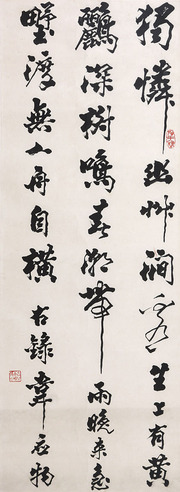 獨憐幽艸澗邊生上有黃
鸝深樹鳴春潮帶雨晚來急
野渡無人舟自橫 右錄韋應物